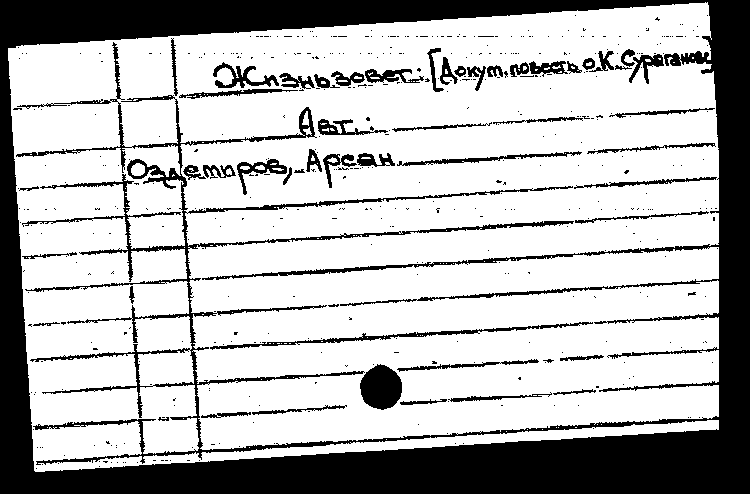 Жизнь зовет: [Докум. повесть о К. Сураганове]
Авт.:
Оздемиров, Арсан.